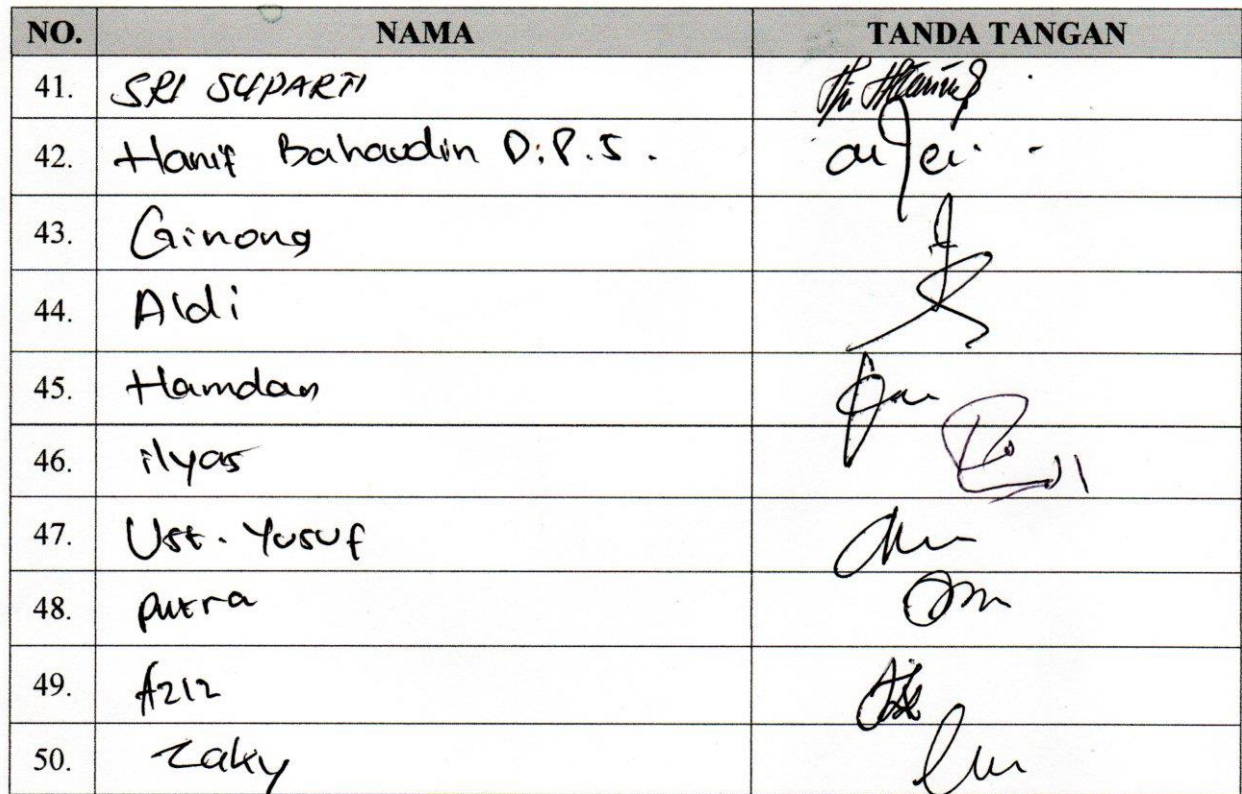 NO. NAMA TANDA TANGAN
41. SRI SUPARTI
42. Hanif Bahaudin D.P.S.
43. Ginong
44. Aldi
45. Hamdan
46. ilyas
47. Ust. Yusuf
48. putra
49. Aziz
50. Zaky